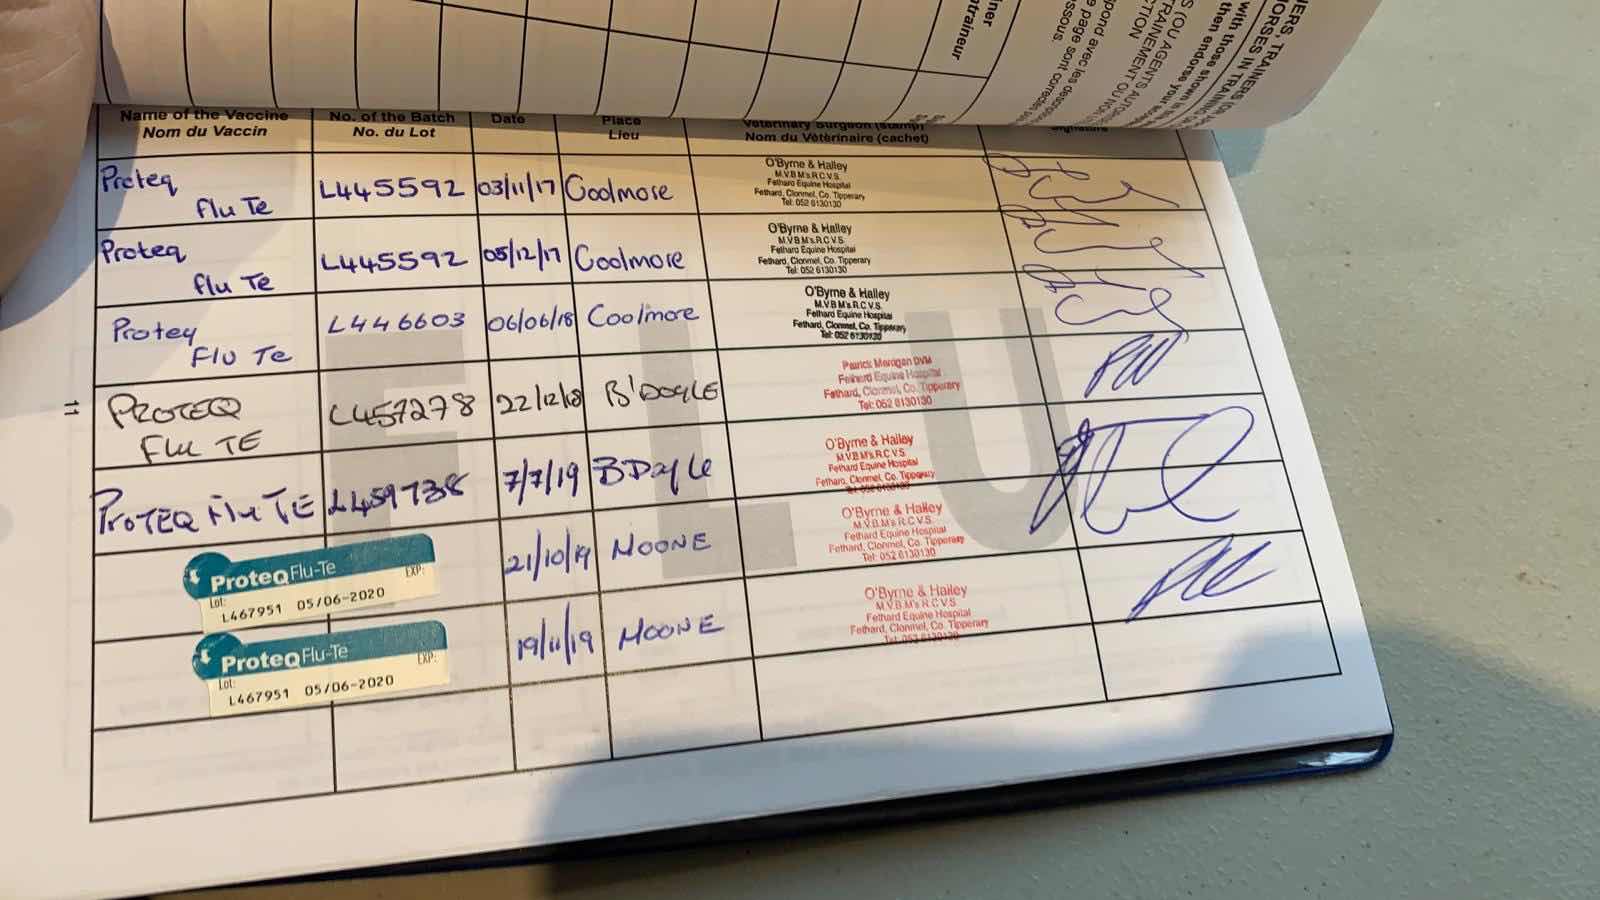 iner
traineur
IERS, TRAINERS (OR A
HORSES IN TRAINING O
with those shown in
then endorse your s
S (OU AGENTS AUTOR
TRAINEMENT OU NON
CTION
spond avec les
e page sont correctes
ssous.
Name of the Vaccine No. of the Batch Date Place Veterinary Surgeon (stamp) Signature
Nom du Vaccin No. du Lot Lieu Nom du Vétérinaire (cachet)
Proteq Flu Te L445592 03/11/17 Coolmore
O'Byrne & Halley
M.V.B M's R.C.V.S.
Fethard Equine Hospital
Fethard, Clonmel, Co. Tipperary
Tel: 052 6130130
Proteq flu Te L445592 05/12/17 Coolmore
O'Byrne & Halley
M.V.B M's R.C.V.S.
Fethard Equine Hospital
Fethard, Clonmel, Co. Tipperary
Tel: 052 6130130
Proteq Flu Te L446603 06/06/18 Coolmore
O'Byrne & Halley
M.V.B M's R.C.V.S.
Fethard Equine Hospital
Fethard, Clonmel, Co. Tipperary
Tel: 052 6130130
PROTEQ FLU TE L457278 22/12/18 B'DOYLE
DVM
Fethard Equine Hospital
Fethard, Clonmel, Co. Tipperary
Tel: 052 6130130
PROTEQ Flu TE L459738 7/7/19 B Doyle
O'Byrne & Halley
M.V.B M's R.C.V.S.
Fethard Equine Hospital
Fethard, Clonmel, Co. Tipperary
Tel: 052 6130130
ProteqFlu-Te
Lot: EXP:
L467951 05/06-2020
21/10/19 MOONE
O'Byrne & Halley
M.V.B M's R.C.V.S.
Fethard Equine Hospital
Fethard, Clonmel, Co. Tipperary
Tel: 052 6130130
ProteqFlu-Te
Lot: EXP:
L467951 05/06-2020
19/11/19 MOONE
O'Byrne & Halley
M.V.B M's R.C.V.S.
Fethard Equine Hospital
Fethard, Clonmel, Co. Tipperary
Tel: 052 6130130
FLU
11